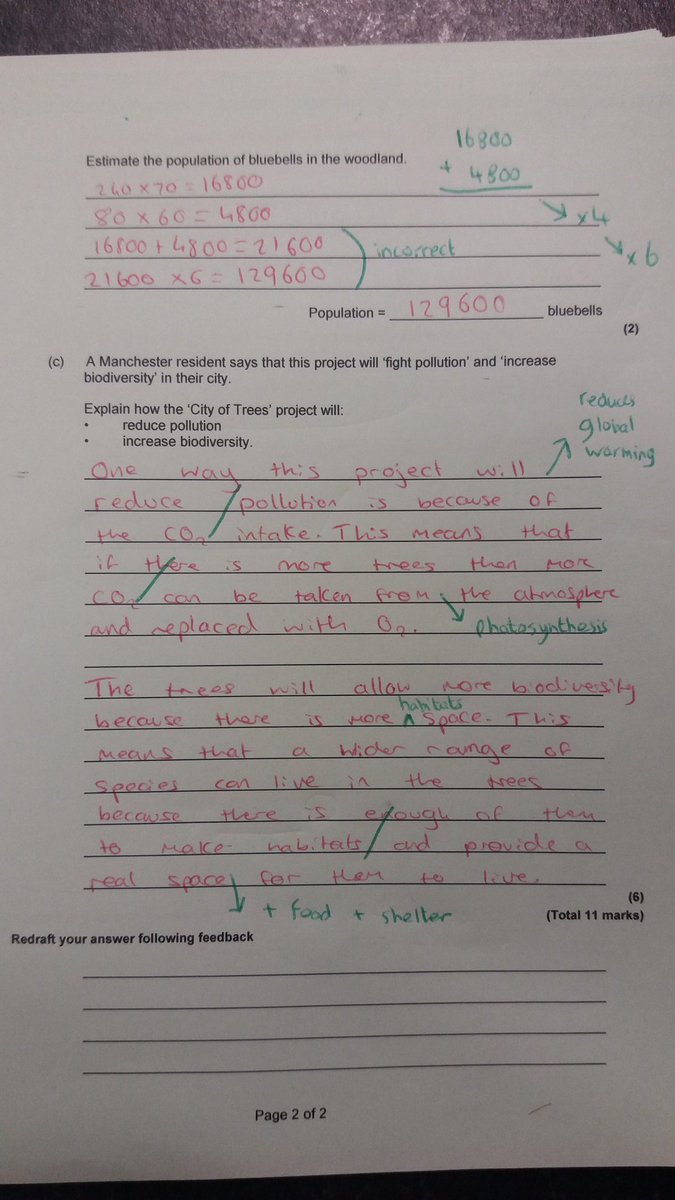 Estimate the population of bluebells in the woodland.
16800
+ 4800
240 × 70 = 16800
80 × 60 = 4800
×4
16800 + 4800 = 21600
incorrect
×6
21600 × 6 = 129600
Population = 129600 bluebells
(2)
(c) A Manchester resident says that this project will 'fight pollution' and 'increase
biodiversity' in their city.
Explain how the 'City of Trees' project will:
• reduce pollution
• increase biodiversity.
reduces
global
warming
One way this project will
reduce pollution is because of
the CO2 intake. This means that
if there is more trees then more
CO2 can be taken from the atmosphere
and replaced with O2.
photosynthesis
The trees will allow more biodiversity
habitats
because there is more ^ space. This
means that a wider range of
species can live in the trees
because there is enough of them
to make habitats and provide a
real space for them to live.
+ food + shelter
(6)
(Total 11 marks)
Redraft your answer following feedback
Page 2 of 2